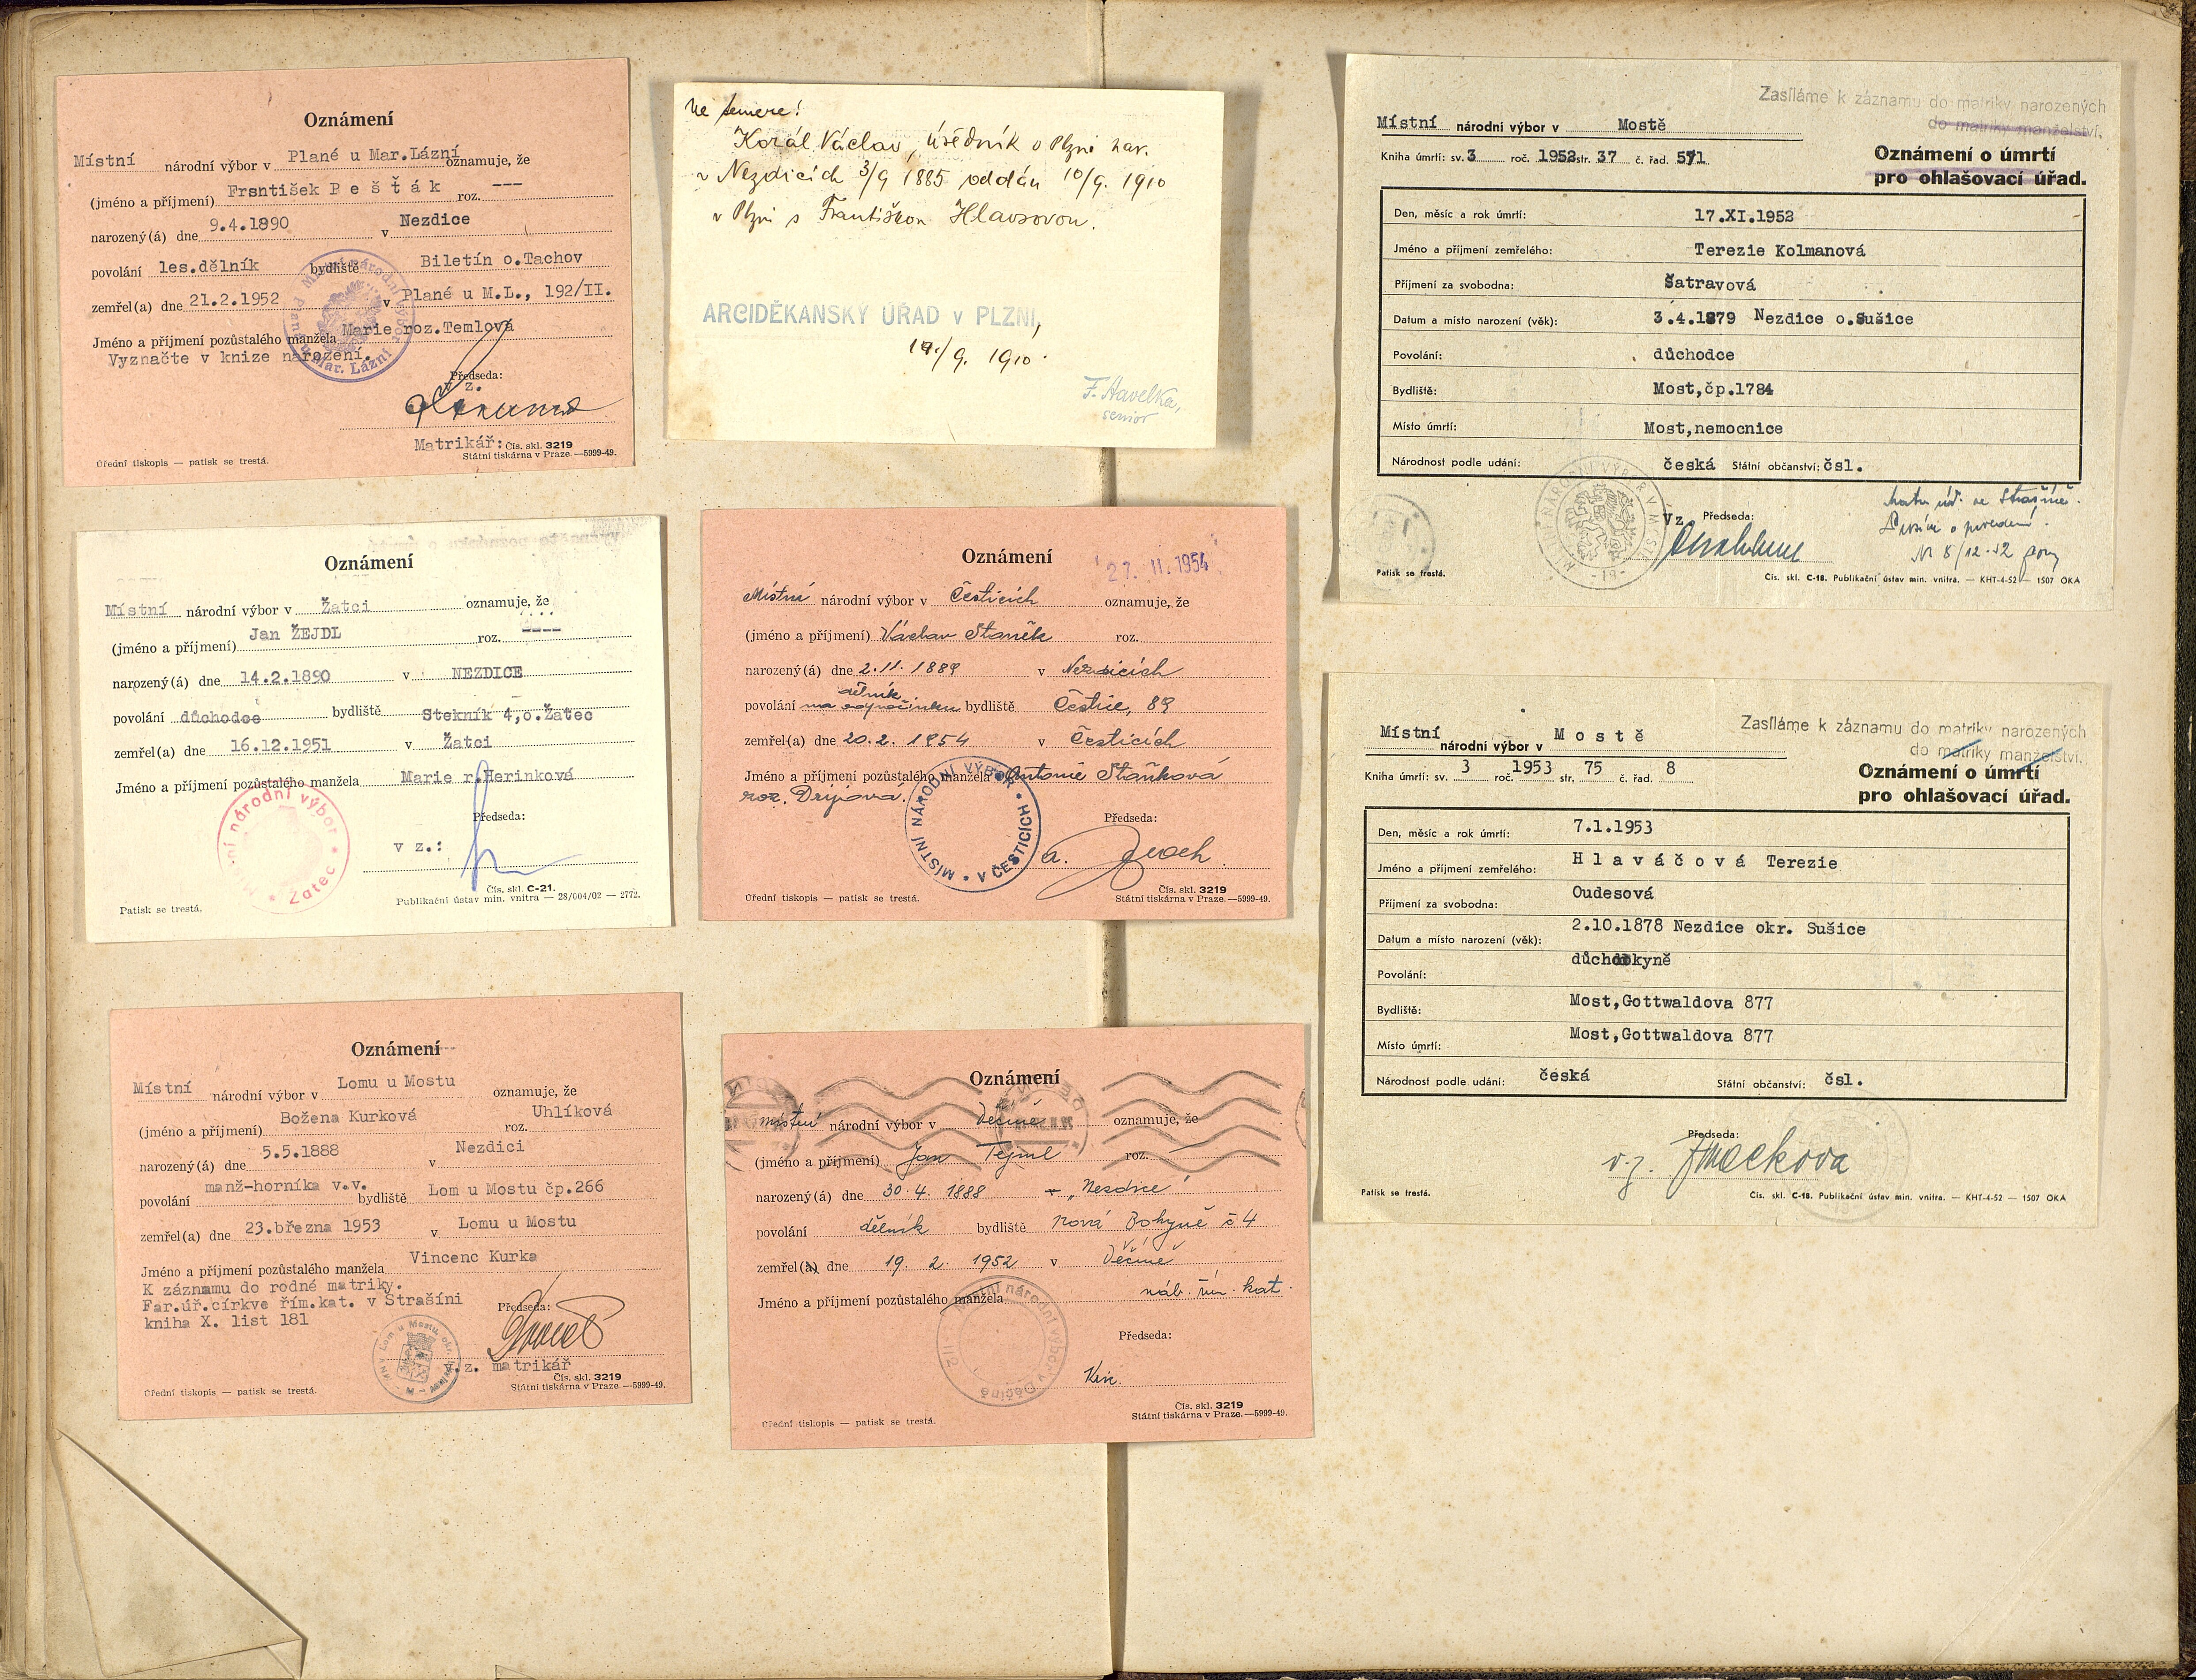 Oznámení
Místní národní výbor v Plané u Mar.Lázní oznamuje, že
(jméno a příjmení) Frsntišek Bešťák roz. ---
narozený(á) dne 9.4.1890 v Nezdice
povolání les.dělník bydliště Biletín o.Tachov
zemřel(a) dne 21.2.1952 v Plané u M.L., 192/II.
Jméno a příjmení pozůstalého manžela Marie roz.Temlová
Vyznačte v knize narození.
Předseda:
v z.
Matrikář: Čís. skl. 3219
Úřední tiskopis — patisk se trestá. Státní tiskárna v Praze.—5999-49.
Oznámení
Místní národní výbor v Žatci oznamuje, že
(jméno a příjmení) Jan ŽEJDL roz. ----
narozený(á) dne 14.2.1890 v NEZDICE
povolání důchodce bydliště Stekník 4,o.Žatec
zemřel(a) dne 16.12.1951 v Žatci
Jméno a příjmení pozůstalého manžela Marie r.Herinková
Předseda:
v z.:
Čís. skl. C-21.
Publikační ústav min. vnitra — 28/004/02 — 2772.
Patisk se trestá.
Oznámení
Místní národní výbor v Lomu u Mostu oznamuje, že
(jméno a příjmení) Božena Kurková roz. Uhlíková
narozený(á) dne 5.5.1888 v Nezdici
povolání manž-horníka v.v. bydliště Lom u Mostu čp.266
zemřel(a) dne 23.března 1953 v Lomu u Mostu
Jméno a příjmení pozůstalého manžela Vincenc Kurka
K záznamu do rodné matriky.
Far.úř.církve řím.kat. v Strašíni
kniha X. list 181
Předseda:
v.z. matrikář
Čís. skl. 3219
Úřední tiskopis — patisk se trestá. Státní tiskárna v Praze.—5999-49.
Korál Václav, úředník v Plzni nar.
v Nezdicích 3/9 1885 oddán 10/9. 1910
v Plzni s Františkou Hlavsovou.
ARCIDĚKANSKÝ ÚŘAD v PLZNI,
/9. 1910
F. Havelka,
senior
Oznámení
27. II. 1954
Místní národní výbor v Česticích oznamuje, že
(jméno a příjmení) Václav Staněk roz.
narozený(á) dne 2.11.1889 v Nezdicích
dělník
povolání na odpočinku bydliště Čestice, 89
zemřel(a) dne 20.2.1954 v Česticích
Jméno a příjmení pozůstalého manžela Antonie Staňková
roz.
MÍSTNÍ NÁRODNÍ VÝBOR V ČESTICÍCH
Předseda:
Čís. skl. 3219
Úřední tiskopis — patisk se trestá. Státní tiskárna v Praze.—5999-49.
Oznámení
místní národní výbor v Děčíně oznamuje, že
(jméno a příjmení) Jan Tejml roz.
narozený(á) dne 30.4.1888 v „Nezdice"
povolání dělník bydliště Nová Bohyně č 4
zemřel(a) dne 19. 2. 1952 v Děčíně
Jméno a příjmení pozůstalého manžela náb. řím. kat.
Předseda:
Čís. skl. 3219
Úřední tiskopis — patisk se trestá. Státní tiskárna v Praze.—5999-49.
Zasíláme k záznamu do matriky narozených
do matriky manželství.
Místní národní výbor v Mostě
Kniha úmrtí: sv. 3 roč. 1952 str. 37 č. řad. 571
Oznámení o úmrtí
pro ohlašovací úřad.
Den, měsíc a rok úmrtí: 17.XI.1952
Jméno a příjmení zemřelého: Terezie Kolmanová
Příjmení za svobodna: Šatravová
Datum a místo narození (věk): 3.4.1879 Nezdice o.Sušice
Povolání: důchodce
Bydliště: Most,čp.1784
Místo úmrtí: Most,nemocnice
Národnost podle udání: česká Státní občanství: čsl.
Vz. Předseda:
Patisk se trestá. Čís. skl. C-18. Publikační ústav min. vnitra. — KHT-4-52 — 1507 OKA
Zasíláme k záznamu do matriky narozených
do matriky manželství.
Místní národní výbor v Mostě
Kniha úmrtí: sv. 3 roč. 1953 str. 75 č. řad. 8
Oznámení o úmrtí
pro ohlašovací úřad.
Den, měsíc a rok úmrtí: 7.1.1953
Jméno a příjmení zemřelého: Hlaváčová Terezie
Příjmení za svobodna: Oudesová
Datum a místo narození (věk): 2.10.1878 Nezdice okr. Sušice
Povolání: důchodkyně
Bydliště: Most,Gottwaldova 877
Místo úmrtí: Most,Gottwaldova 877
Národnost podle udání: česká Státní občanství: čsl.
Předseda:
v.z.
Patisk se trestá. Čís. skl. C-18. Publikační ústav min. vnitra. — KHT-4-52 — 1507 OKA